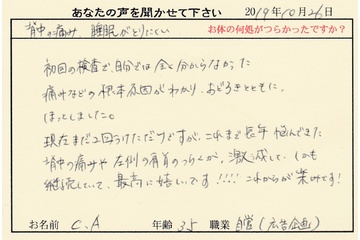 あなたの声を聞かせて下さい 2019年10月26日
お体の何処がつらかったですか?
背中の痛み 睡眠がとりにくい
初回の検査で、自分では全く分からなかった
痛みなどの根本原因がわかり、おどろきとともに、
ほっとしました。
現在まだ2回うけただけですが、これまで長年悩んできた
背中の痛みや左側の肩首のつらさが、激減して、しかも
継続していて、最高に嬉しいです!!!! これからが楽しみです!
お名前 C.A 年齢 35 職業 自営(広告企画)